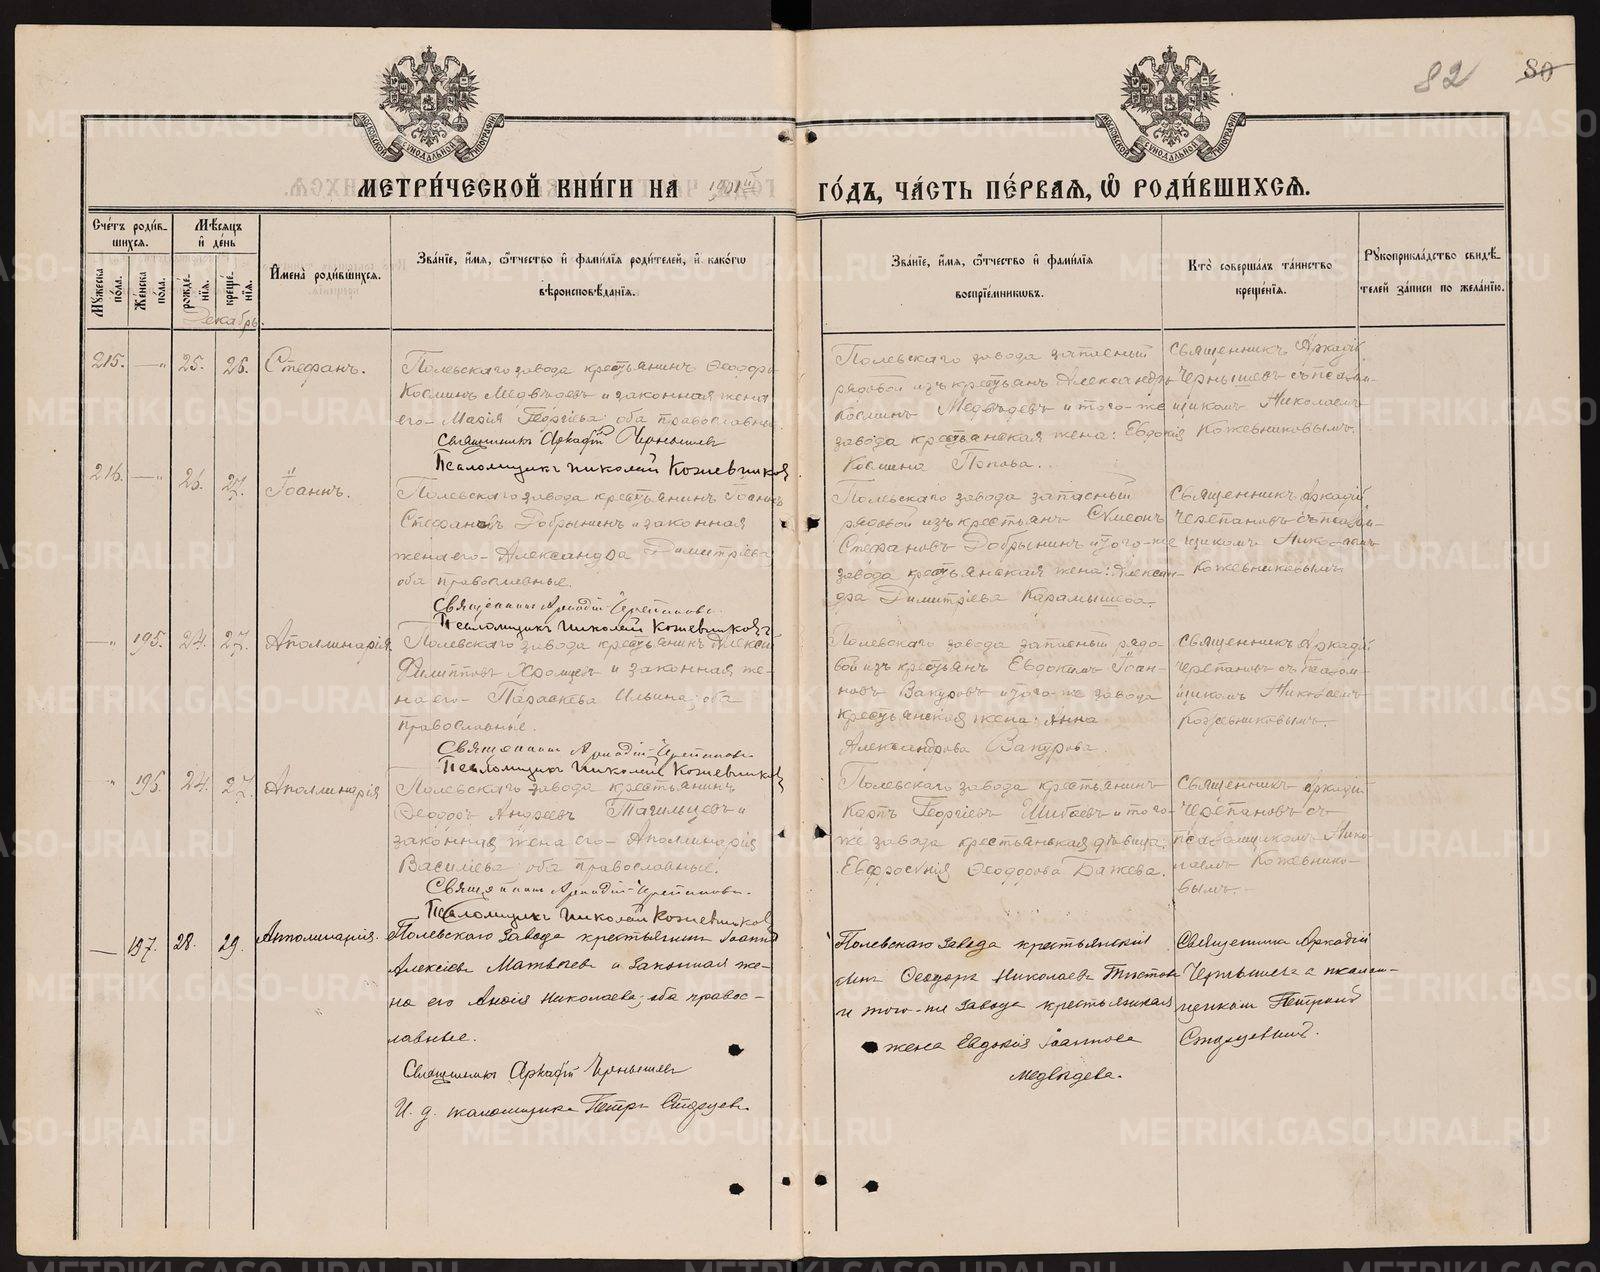 82 80
МОСКОВСКОЙ СѴНОДАЛЬНОЙ ТИПОГРАФІИ
МОСКОВСКОЙ СѴНОДАЛЬНОЙ ТИПОГРАФІИ
МЕТРИ́ЧЕСКОЙ КНИ́ГИ НА
ГО́ДЪ, ЧА́СТЬ ПЕ́РВАЯ, Ѡ҆ РОДИ́ВШИХСЯ.
Сче́тъ роди́в-
шихся.
Мѣ́сяцъ
и҆ де́нь
Му́жеска по́ла.
Же́нска по́ла.
рожде́-
нїя.
креще́-
нїя.
И҆мена̀ роди́вшихся.
Зва́нїе, и҆́мя, ѻ҆́тчество и҆ фами́лїя роди́телей, и҆ како́гѡ
вѣроисповѣ́данїя.
Зва́нїе, и҆́мя, ѻ҆́тчество и҆ фами́лїя
воспрїе́мникѡвъ.
Кто̀ соверша́лъ та́инство
креще́нїя.
Рꙋкоприкла́дство свидѣ́-
телей за́писи по жела́нїю.
Декабрь.
215. — „ 25. 26. Стефанъ.
Полевскаго завода крестьянинъ Ѳеодоръ
Косминъ Медвѣдевъ и законная жена
его Марія Георгіева оба православные
Священникъ Аркадій Чернышевъ
Псаломщикъ Николай Кожевниковъ
Полевскаго завода запасный
рядовой изъ крестьянъ Александръ
Косминъ Медвѣдевъ и того-же
завода крестьянская жена: Евдокія
Космина Попова.
Священникъ Аркадій
Чернышевъ съ псалом-
щикомъ Николаемъ
Кожевниковымъ.
216. — „ 26. 27. Іоаннъ.
Полевскаго завода крестьянинъ Іоаннъ
Стефановъ Добрынинъ и законная
жена его Александра Димитріева
оба православные.
Священникъ Аркадій Черепановъ
Псаломщикъ Николай Кожевниковъ
Полевскаго завода запасный
рядовой изъ крестьянъ Сѵмеонъ
Стефановъ Добрынинъ и того-же
завода крестьянская жена: Алексан-
дра Димитріева Карамышева.
Священникъ Аркадій
Черепановъ съ псалом-
щикомъ Николаемъ
Кожевниковымъ
— „ 195. 24. 27. Аполлинарія
Полевскаго завода крестьянинъ Алексій
Филипповъ Хромцевъ и законная же-
на его Параскева Ильина; оба
православные.
Священникъ Аркадій Черепановъ
Псаломщикъ Николай Кожевниковъ
Полевскаго завода запасный рядо-
вой изъ крестьянъ Евдокимъ Іоан-
новъ Вакуровъ и того-же завода
крестьянская жена: Анна
Александрова Вакурова.
Священникъ Аркадій
Черепановъ съ псалом-
щикомъ Николаемъ
Кожевниковымъ.
„ 196. 24. 27. Аполлинарія
Полевскаго завода крестьянинъ
Ѳеодоръ Андреевъ Тагильцевъ и
законная жена его Аполлинарія
Василіева оба православные.
Священникъ Аркадій Черепановъ
Псаломщикъ Николай Кожевниковъ
Полевскаго завода крестьянинъ
Карпъ Георгіевъ Шибаевъ и того-
же завода крестьянская дѣвица:
Евфросинія Ѳеодорова Бажева.
Священникъ Аркадій
Черепановъ съ
псаломщикомъ Нико-
лаемъ Кожевнико-
вымъ.
— 197. 28. 29. Апполинарія.
Полевскаго завода крестьянинъ Іоаннъ
Алексіевъ Матвѣевъ и законная же-
на его Анѳія Николаева; оба правос-
лавные.
Священникъ Аркадій Чернышевъ
И. д. псаломщика Петръ Старцевъ
Полевскаго завода крестьянскій
сынъ Ѳеодоръ Николаевъ
и того-же завода крестьянская
жена Евдокія Іоаннова
Медвѣдева.
Священникъ Аркадій
Чернышевъ с псалом-
щикомъ Петромъ
Старцевымъ.